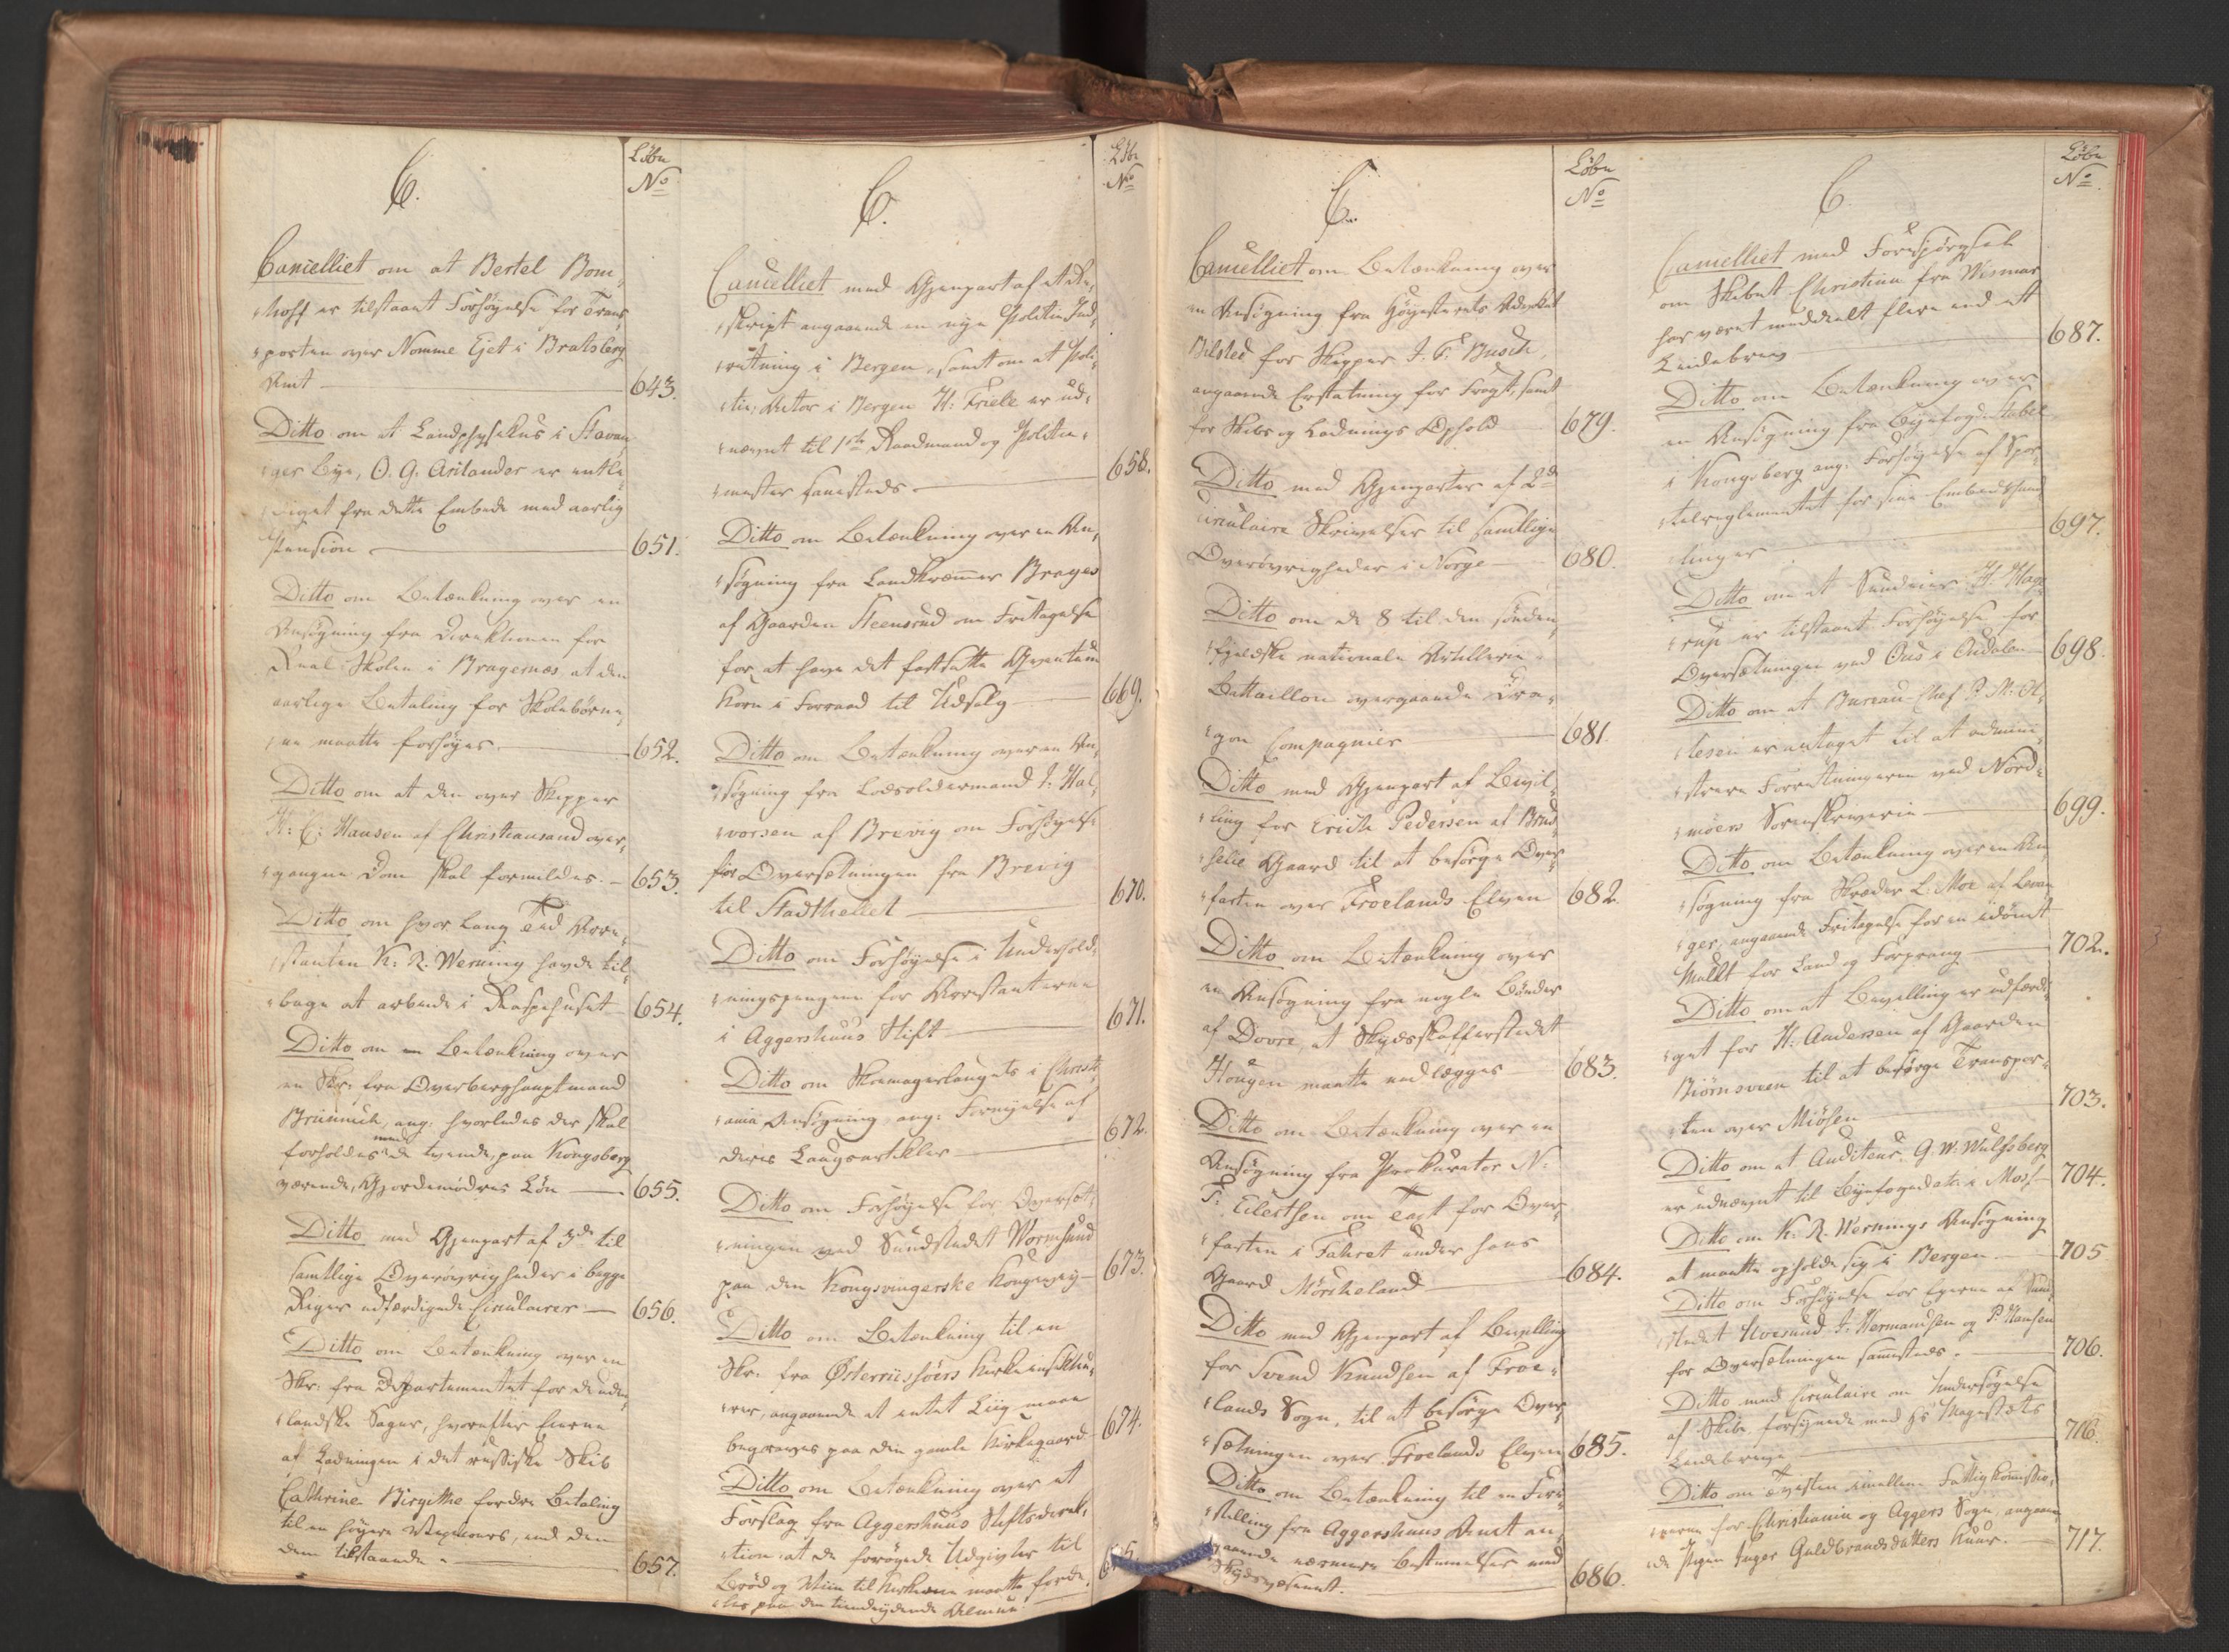 C.
Løbe
No
Cancelliet om at Bertel Bom,
hoff er tilstaaet Forhøyelse for Trans,
porten over Nomme Ejet i Bratsberg
Amt 643.
Ditto om at Landphysikus i Stavan,
ger Bye, O. G. Arilander er entle,
diget fra dette Embede med aarlig
Pension 651.
Ditto om Betænkning over en
Ansøgning fra Direktionen for
Real-Skolen i Bragernæs at den
aarlige Betaling for Skolebørne,
ne maatte forhøyes. 652.
Ditto om at den over Skipper
H: C: Hansen af Christiansand over,
gangne Dom skal formildes. 653.
Ditto om hvor lang Tid Arre,
stanten K: R. Werning havde til,
bage at arbeide i Raspehuset 654.
Ditto om Betænkning over
en Skr: fra Overberghauptmand
Brünnich, ang: hvorledes der skal
forholdes med de tvende, paa Kongsberg
værende, Gjordemødres Løn 655.
Ditto med Gjenpart af 3de til
samtlige Overøvrigheder i begge
Riger udfærdigede Circulairer 656.
Ditto om Betænkning over en
Skr: fra Departementet for de uden,
landske Sager, hvorefter Eierne
af Ladningen i det russiske Skib
Cathrine Birgithe fordre Betaling
til en høyere Vexelcours, end den
dem tilstaaede. 657.
C.
Løbe
No
Cancelliet med Gjenpart af et Re,
skript angaaende en nye Politie Ind,
retning i Bergen, samt om at Poli,
tie, Actor i Bergen H: Friele er ud,
nævnt til 1ste Raadmand og Politie,
mester sammesteds. 658.
Ditto om Betænkning over en An,
søgning fra Landkræmmer Brages
af Gaarden Steensrud om Frittagelse
for at have det fastsatte Qvantum
Korn i Forraad til Udsalg 669.
Ditto om Betænkning over en An,
søgning fra Lodsoldermand J. Hal,
vorsen af Brevig om Forhøyelse
for Oversætningen fra Brevig
til Stadthellet 670.
Ditto om Forhøyelse i Underhold,
ningspengene for Arrestanterne
i Aggershuus Stift 671.
Ditto om Skomagerlaugets i Christi,
ania Ansøgning ang: Fornyelse af
deres Laugsartikler 672.
Ditto om Forhøyelse for Oversæt,
ningen ved Sundstedet Wormsund
paa den Kongsvingerske Kongevey 673.
Ditto om Betænkning til en
Skr: fra Østerriisøers Kirkeinspekteu,
rer, angaaende at intet Liig maae
begraves paa den gamle Kirkegaard 674.
Ditto om Betænkning over et
Forslag fra Aggershuus Stiftsdirek,
tion, at de forøgede Udgivter til
Brød og Viin til Kirkerne maatte forde,
les paa den tiendeydende Almue.
C.
Løbe
No
Cancelliet om Betænkning over
en Ansøgning fra Høyesterets Advokat
Bilsted for Skipper J. C. Busch,
angaaende Erstatning for Fragt, samt
for Skibs og Ladnings Ophold 679.
Ditto med Gjenparter af 2de
Circulaire Skrivelser til samtlige
Overøvrigheder i Norge 680.
Ditto om de 8 til den sønden,
fjeldske nationale Artillerie
Battaillon overgaaende Dra,
gon Compagnier 681.
Ditto med Gjenpart af Bevil,
ling for Erich Pedersen af Brød,
selie Gaard til at besørge Over,
farten over Froelands Elven 682.
Ditto om Betænkning over
en Ansøgning fra nogle Bønder
af Dovre, at Skydsskafferstedet
Hougen maatte nedlægges 683.
Ditto om Betænkning over en
Ansøgning fra Prokurator N:
T: Eilertsen om Taxt for Over,
farten i Fahret under hans
Gaard Mörcheland 684.
Ditto med Gjenpart af Bevilling
for Svend Knudsen af Froe,
lands Sogn, til at besørge Over,
sætningen over Froelands Elven 685.
Ditto om Betænkning til en Fore,
stilling fra Aggershuus Amt an,
gaaende nærmere Bestemmelser ved
Skydsvæsenet. 686.
C.
Løbe
No
Cancelliet med Forespørgsel
om Skibet Christina fra Wismar
har været meddeelt flere end et
Leidebrev 687.
Ditto om Betænkning over
en Ansøgning fra Byefoged Stabel
i Kongsberg ang: Forhøyelse af Spor,
telreglementet for sine Embedshand,
linger 697.
Ditto om at Sundeier H. Hage,
rup er tilstaaet Forhøyelse for
Oversætningen ved Ous i Oudalen 698.
Ditto om at Bureau-Chef P. M. Ol,
lesen er antaget til at admini,
strere Forretningerne ved Nord,
møers Sorenskriverie 699.
Ditto om Betænkning over en An,
søgning fra Skræder L: Moe af Levan,
ger, angaaende Fritagelse for en idømt
Mulkt for Land og Forprang 702.
Ditto om at Bevilling er udfærdi,
get for H: Andersen af Gaarden
Biörnsveen til at besørge Transpor,
ten over Miösen 703.
Ditto om at Auditeur G. W. Wulfsberg
er udnævnt til Byefoged etc. i Moss 704.
Ditto om K: R. Wernings Ansøgning
at maatte opholde sig i Bergen 705
Ditto om Forhøyelse for Eierne af Sund,
stedet Uvesund J: Hermandsen og P. Hansen
for Oversætningen sammesteds. 706.
Ditto med Circulaire om Undersøgelse
af Skibe forsynede med Hs Majestæts
Leidebreve 716.
Ditto om Tvisten imellem Fattigkommissio,
nerne for Christiania og Aggers Sogn, angaaen,
de Pigen Inger Guldbrandsdatters Kuur. 717.